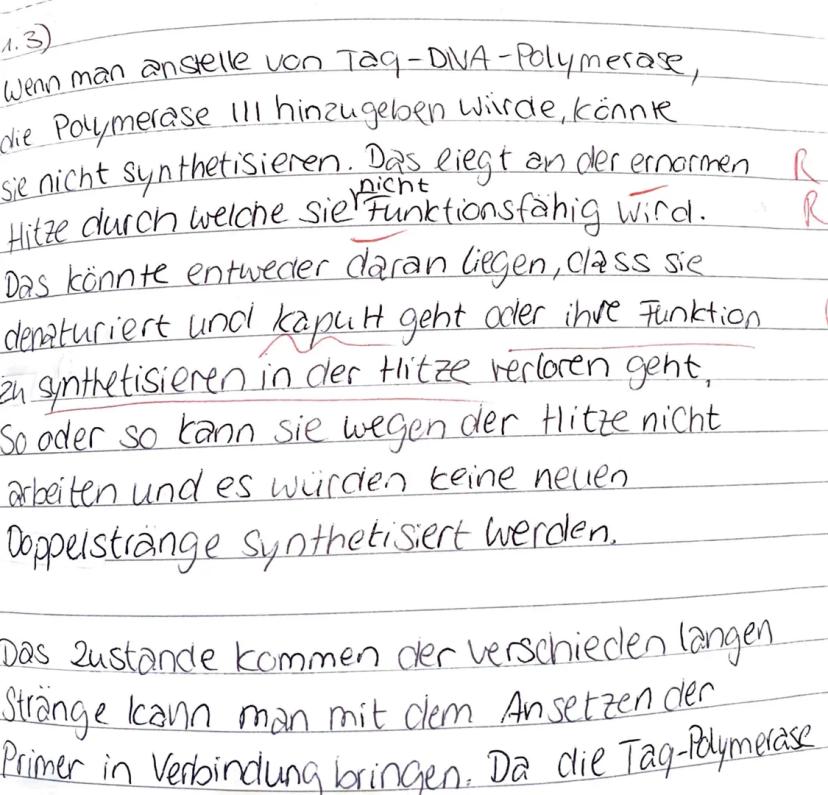 1.3)
Wenn man anstelle von Taq-DNA-Polymerase,
die Polymerase III hinzugeben würde, könnte
sie nicht synthetisieren. Das liegt an der ernormen R
nicht
Hitze durch welche sie funktionsfähig wird. R
Das könnte entweder daran liegen, dass sie
denaturiert und kaputt geht oder ihre Funktion
zu synthetisieren in der Hitze verloren geht,
So oder so kann sie wegen der Hitze nicht
arbeiten und es würden keine neuen
Doppelstränge synthetisiert werden.
Das Zustande kommen der verschieden langen
Stränge kann man mit dem Ansetzen der
Primer in Verbindung bringen. Da die Taq-Polymerase